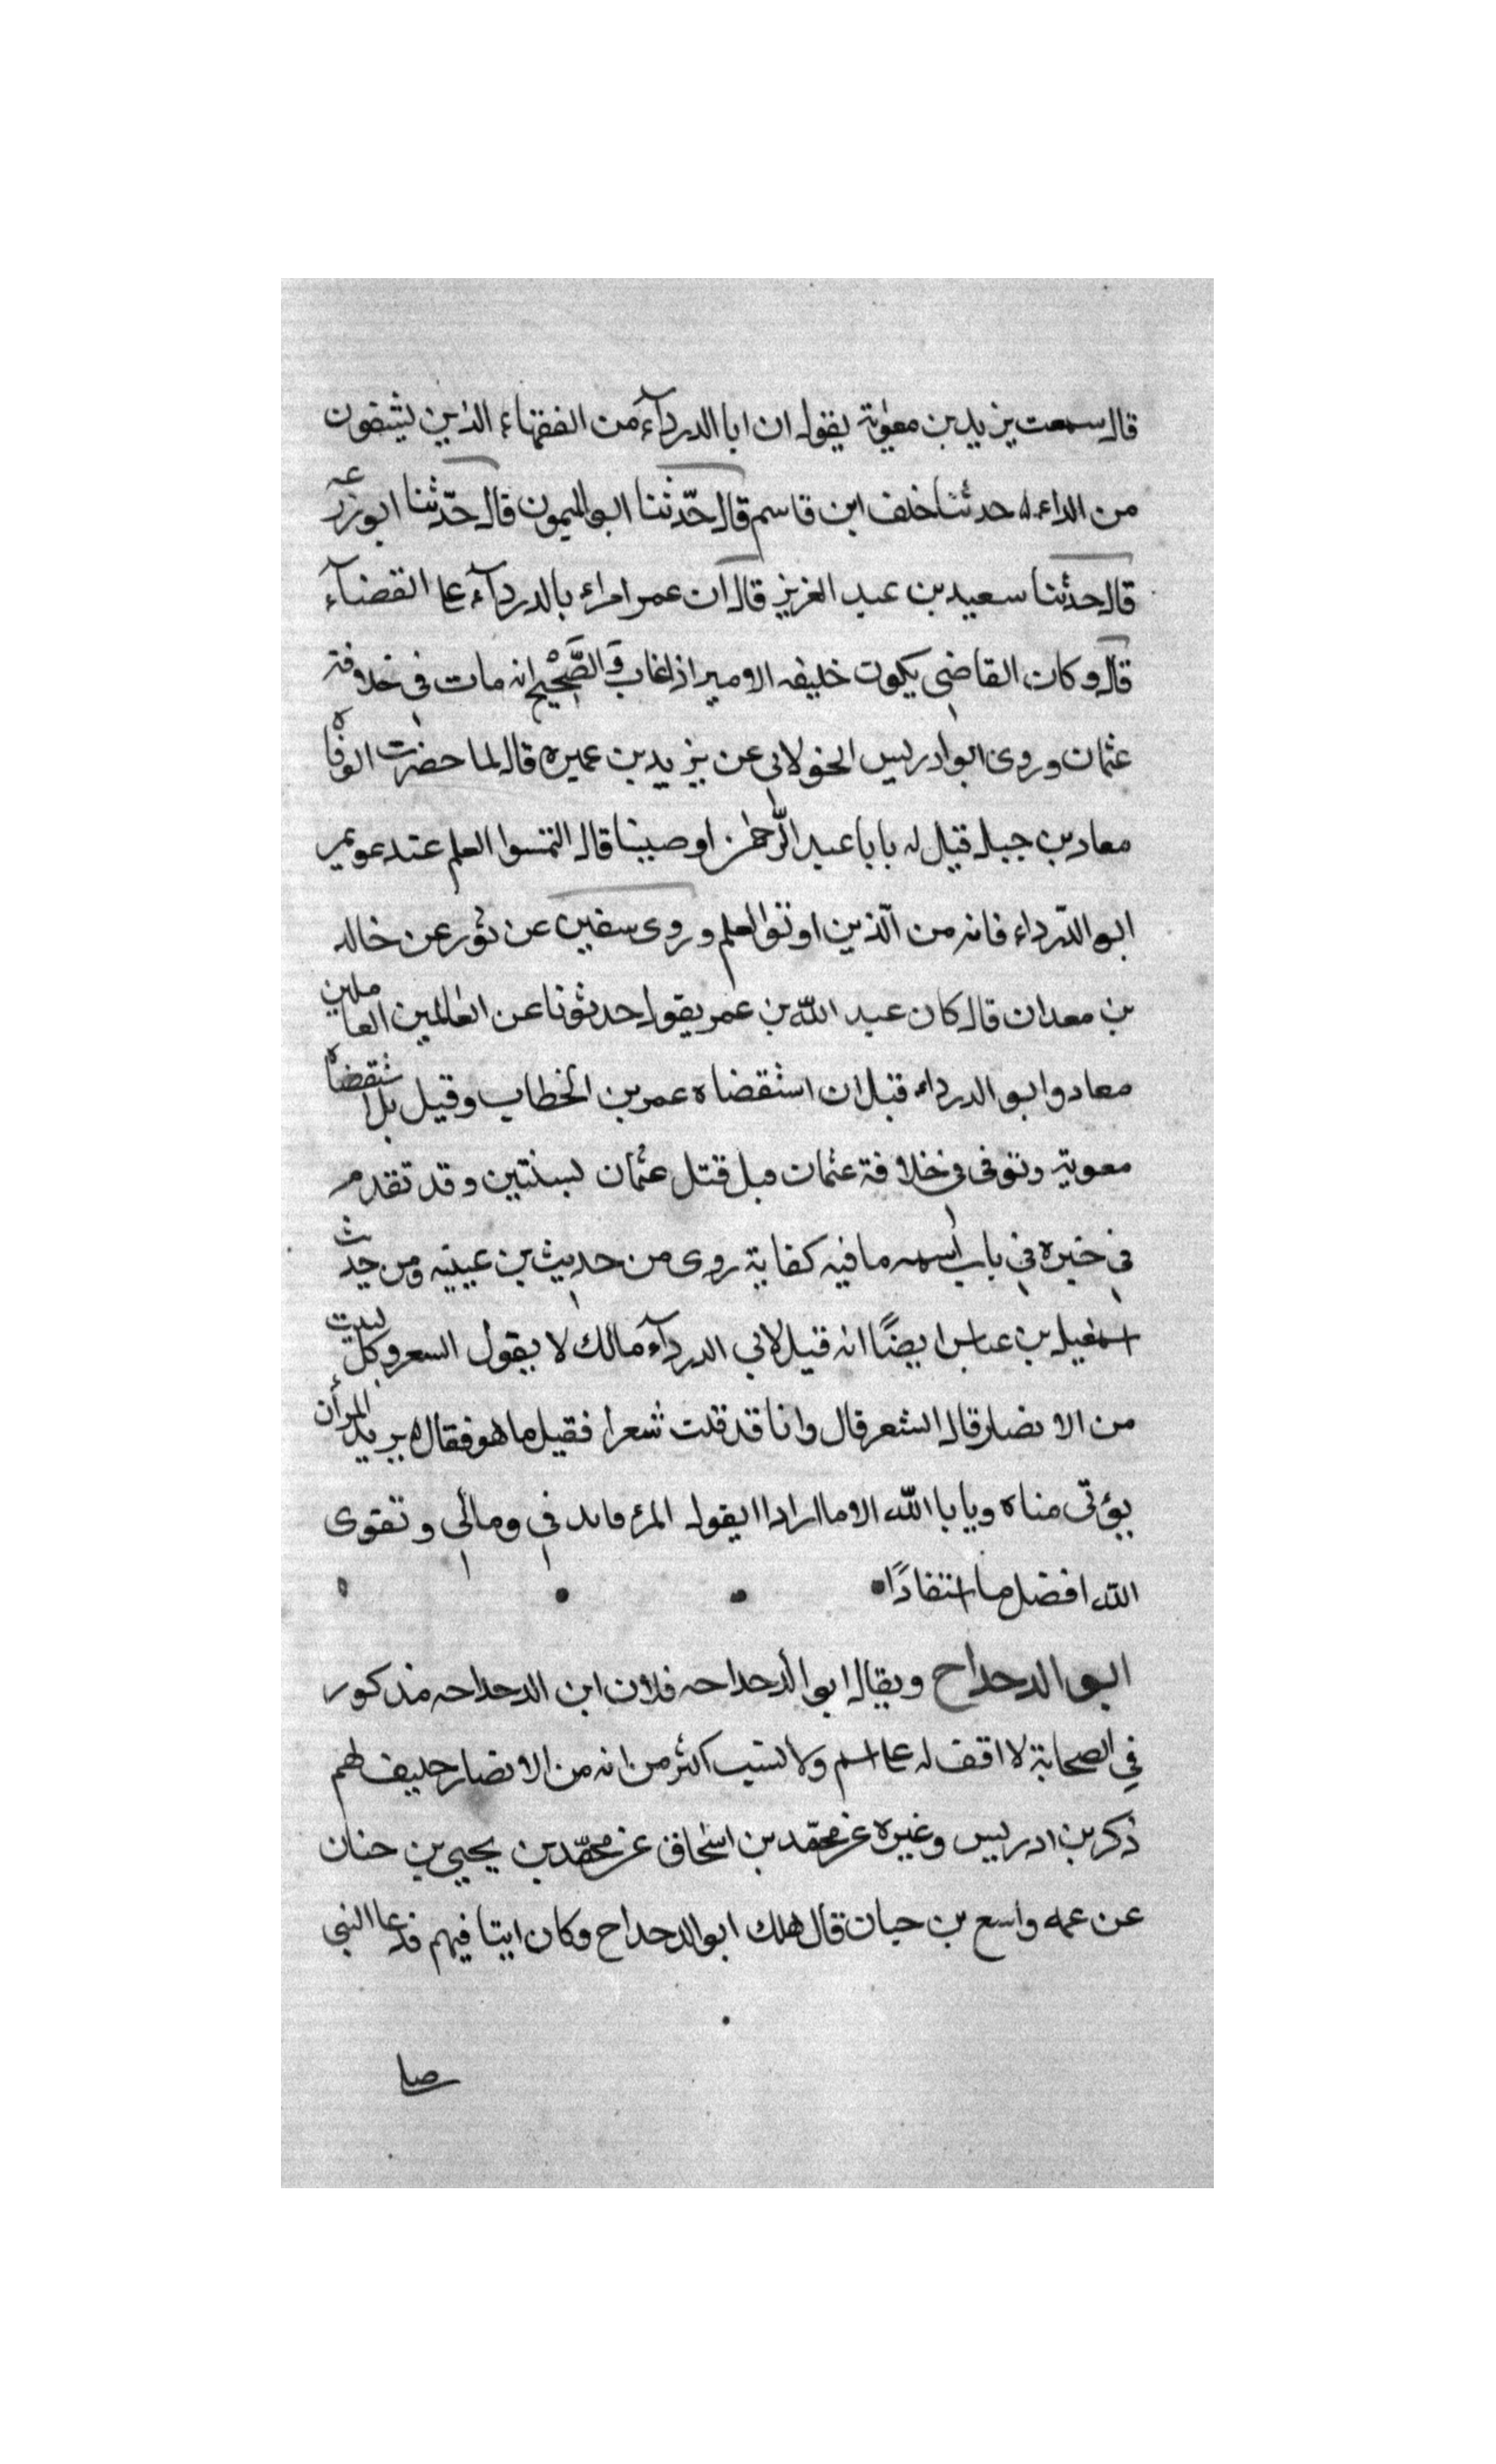 قال سمعت يزيد بن معوية يقول ان ابا الدردآء من الفقهاء الذين يشفون
من الداء حدثنا خلف ابن قاسم قال حدّثنا ابو الميمون قال حدّثنا ابو زرعه
قال حدثنا سعيد بن عبد العزيز قال ان عمر امراء بالدردآء على القضآء
قال وكان القاضي يكون خليفه الامير اذا غاب والصَّحْيح انه مات في خلافته
عثمان وروى ابو ادريس الخولاني عن يزيد بن عميره قال لما حضرت الوفاه
معاد بن جبل قيل له يابا عبد الرّحمن اوصينا قال التمسوا العلم عند عويمر
ابو الدّرداء فانه من الّذين اوتوا العلم وروى سفين عن ثور عن خالد
بن معدان قال كان عبد اللّه بن عمر يقول حدثونا عن العالمين العاملين
معاد وابو الدرداء قبل ان استقضاه عمر بن الخطاب وقيل بل استقضاه
معوية وتوفى في خلافة عثمان قبل قتل عثمان بسنتين وقد تقدم
في خبره في باب اسمه ما فيه كفاية روى من حديث بن عيينه ومن حديث
اسمعيل بن عباس ايضًا انه قيل لابي الدردآء مالك لا يقول السعر وكل لبيت
من الانصار قال الشعر قال وانا قد قلت شعرا فقيل ما هو فقال يريد المرأن
يؤتى مناه ويابا اللّه الا ما ارادا يقول المرء فايد في ومالي وتقوى
اللّه افضل ما استفادًا
ابو الدحداح ويقال ابو الدحداحه فلان ابن الدحداحه مذكور
في الصحابة لا اقف له على اسم ولا نسب اكثر من انه من الانصار حليف لهم
ذكر بن ادريس وغيره عن محمّد بن اسحاق عن محمّد بن يحيى بن حنان
عن عمه واسع بن حبان قال هلك ابو الدحداح وكان ايتا فيهم فدعا النبي
صا